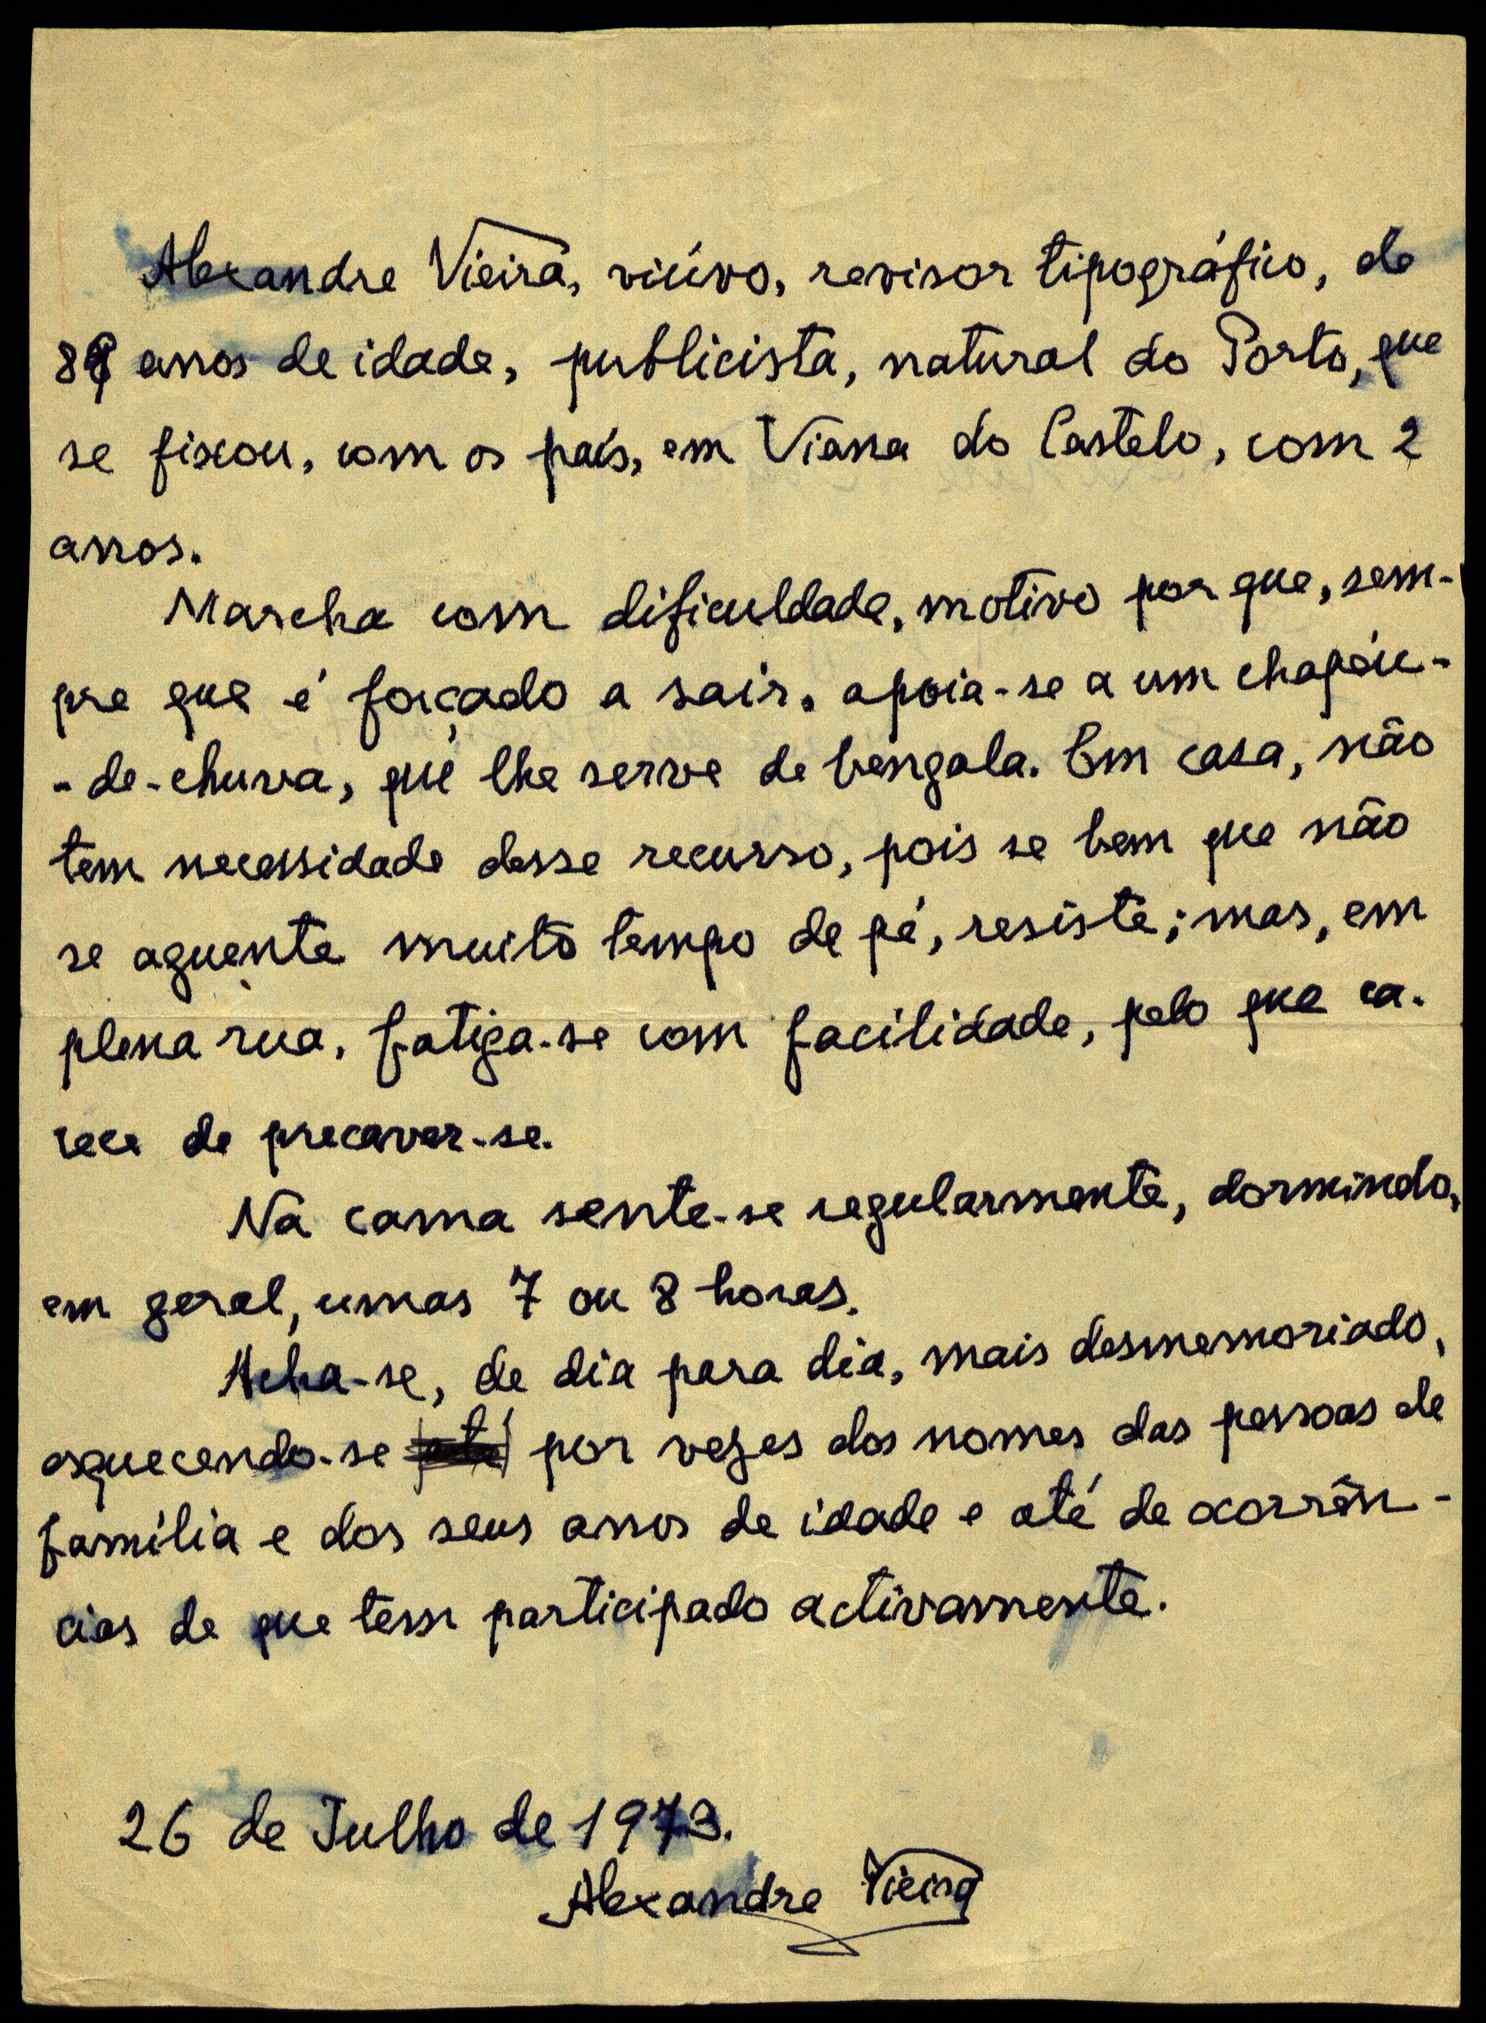 Alexandre Vieira, viúvo, revisor tipográfico, de
anos de idade, publicista, natural do Porto, que
se fixou, com os país, em Viana do Castelo, com 2
anos.
Marcha com dificuldade, motivo por que, sem-
pre que é forçado a sair, apoia-se a um chapéu-
-de-chuva, que lhe serve de bengala. Em casa, não
tem necessidade desse recurso, pois se bem que não
se aguente muito tempo de pé, resiste; mas, em
plena rua, fatiga-se com facilidade, pelo que ca-
rece de precaver-se.
Na cama sente-se regularmente, dormindo,
em geral, umas 7 ou 8 horas.
Acha-se, de dia para dia, mais desmemoriado,
esquecendo-se até por vezes dos nomes das pessoas de
família e dos seus anos de idade e até de ocorrên-
cias de que tem participado activamente.
26 de Julho de 1973.
Alexandre Vieira